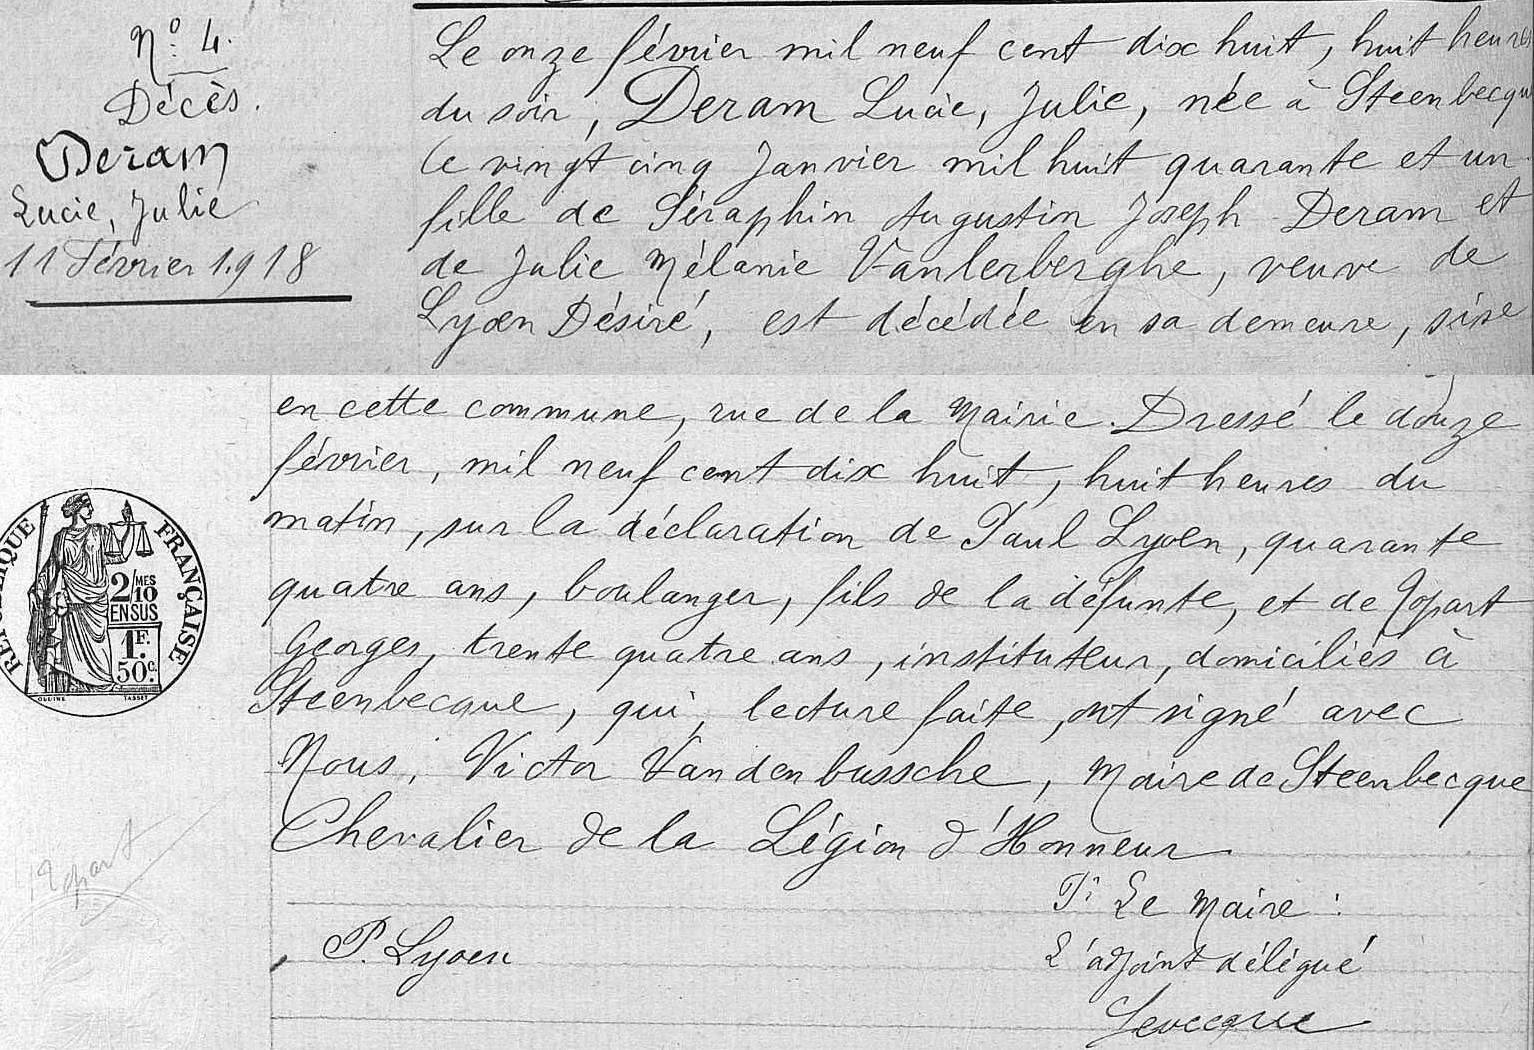 N° 4.
Décès.
Deram
Lucie, Julie
11 Février 1.918
Le onze février mil neuf cent dix huit, huit heures
du soir, Deram Lucie, Julie, née à Steenbecque
le vingt cinq Janvier mil huit quarante et un
fille de Séraphin Augustin Joseph Deram et
de Julie Mélanie Vanlerberghe, veuve de
Lyoen Désiré, est décédée en sa demeure, sise
en cette commune, rue de la Mairie. Dressé le douze
février, mil neuf cent dix huit, huit heures du
matin, sur la déclaration de Paul Lyoen, quarante
quatre ans, boulanger, fils de la défunte, et de Ropart
Georges, trente quatre ans, instituteur, domiciliés à
Steenbecque, qui, lecture faite, ont signé avec
Nous, Victor Vandenbussche, Maire de Steenbecque
Chevalier de la Légion d'Honneur
RÉPUBLIQUE FRANÇAISE
2/10 MES
EN SUS
1F.
50c.
OUDINÉ TASSET
Pr Le Maire :
P. Lyoen
L'adjoint délégué